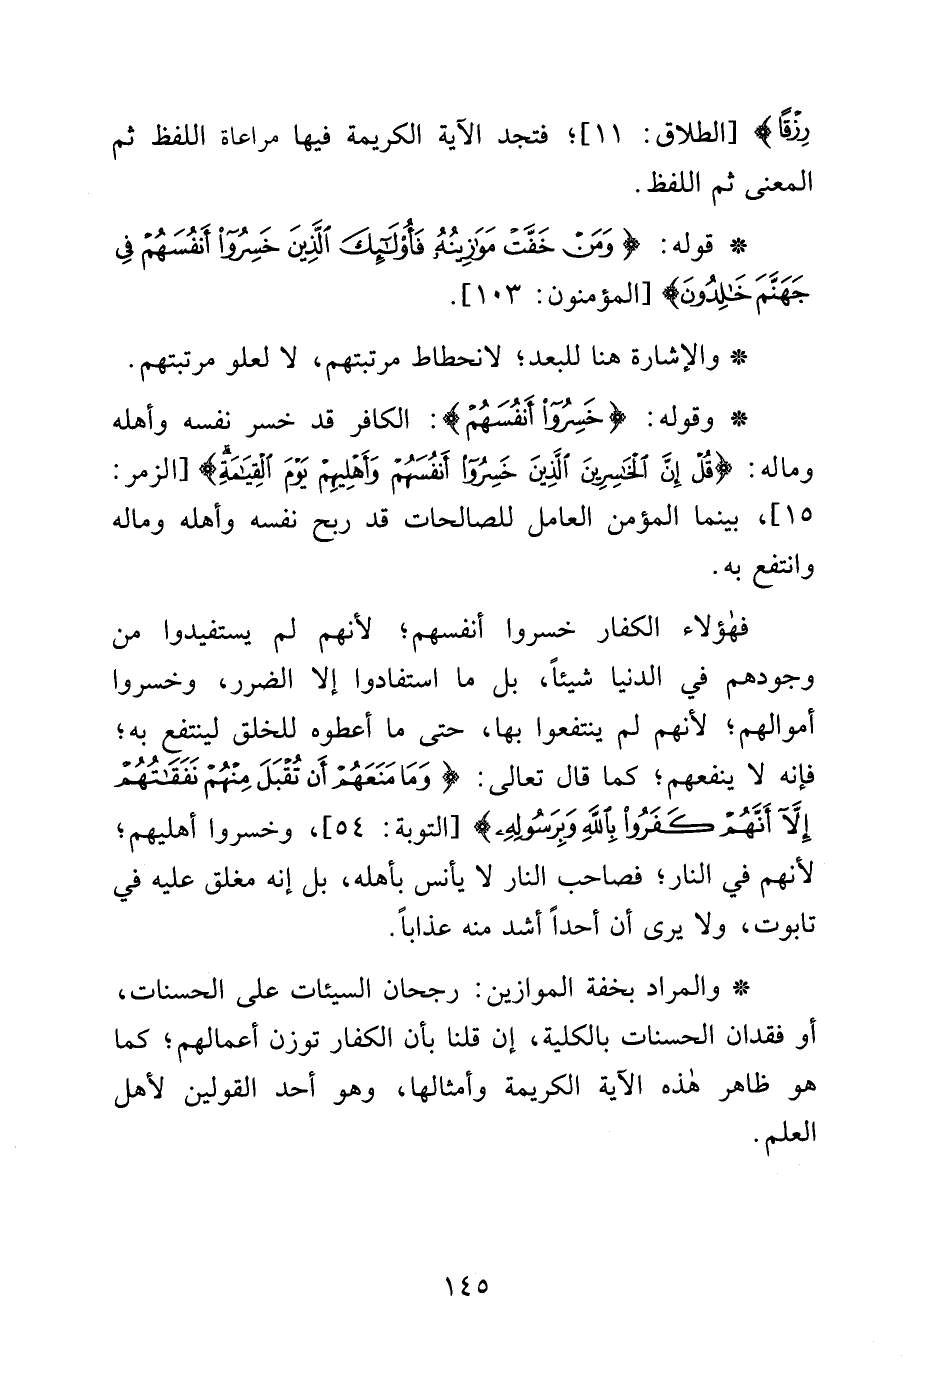 رِزْقًا﴾ [الطلاق: ١١]؛ فتجد الآية الكريمة فيها مراعاة اللفظ ثم
المعنى ثم اللفظ.
* قوله: ﴿وَمَنْ خَفَّتْ مَوَازِينُهُ فَأُوْلَٰٓئِكَ ٱلَّذِينَ خَسِرُوٓاْ أَنفُسَهُمْ فِى
جَهَنَّمَ خَٰلِدُونَ﴾ [المؤمنون: ١٠٣].
* والإشارة هنا للبعد؛ لانحطاط مرتبتهم، لا لعلو مرتبتهم.
* وقوله: ﴿خَسِرُوٓاْ أَنفُسَهُمْ﴾: الكافر قد خسر نفسه وأهله
وماله: ﴿قُلْ إِنَّ ٱلْخَٰسِرِينَ ٱلَّذِينَ خَسِرُوٓاْ أَنفُسَهُمْ وَأَهْلِيهِمْ يَوْمَ ٱلْقِيَٰمَةِۗ﴾ [الزمر:
١٥]، بينما المؤمن العامل للصالحات قد ربح نفسه وأهله وماله
وانتفع به.
فهٰؤلاء الكفار خسروا أنفسهم؛ لأنهم لم يستفيدوا من
وجودهم في الدنيا شيئاً، بل ما استفادوا إلا الضرر، وخسروا
أموالهم؛ لأنهم لم ينتفعوا بها، حتى ما أعطوه للخلق لينتفع به؛
فإنه لا ينفعهم؛ كما قال تعالى: ﴿وَمَا مَنَعَهُمْ أَن تُقْبَلَ مِنْهُمْ نَفَقَٰتُهُمْ
إِلَّآ أَنَّهُمْ كَفَرُواْ بِٱللَّهِ وَبِرَسُولِهِۦ﴾ [التوبة: ٥٤]، وخسروا أهليهم؛
لأنهم في النار؛ فصاحب النار لا يأنس بأهله، بل إنه مغلق عليه في
تابوت، ولا يرى أن أحداً أشد منه عذاباً.
* والمراد بخفة الموازين: رجحان السيئات على الحسنات،
أو فقدان الحسنات بالكلية، إن قلنا بأن الكفار توزن أعمالهم؛ كما
هو ظاهر هٰذه الآية الكريمة وأمثالها، وهو أحد القولين لأهل
العلم.
١٤٥